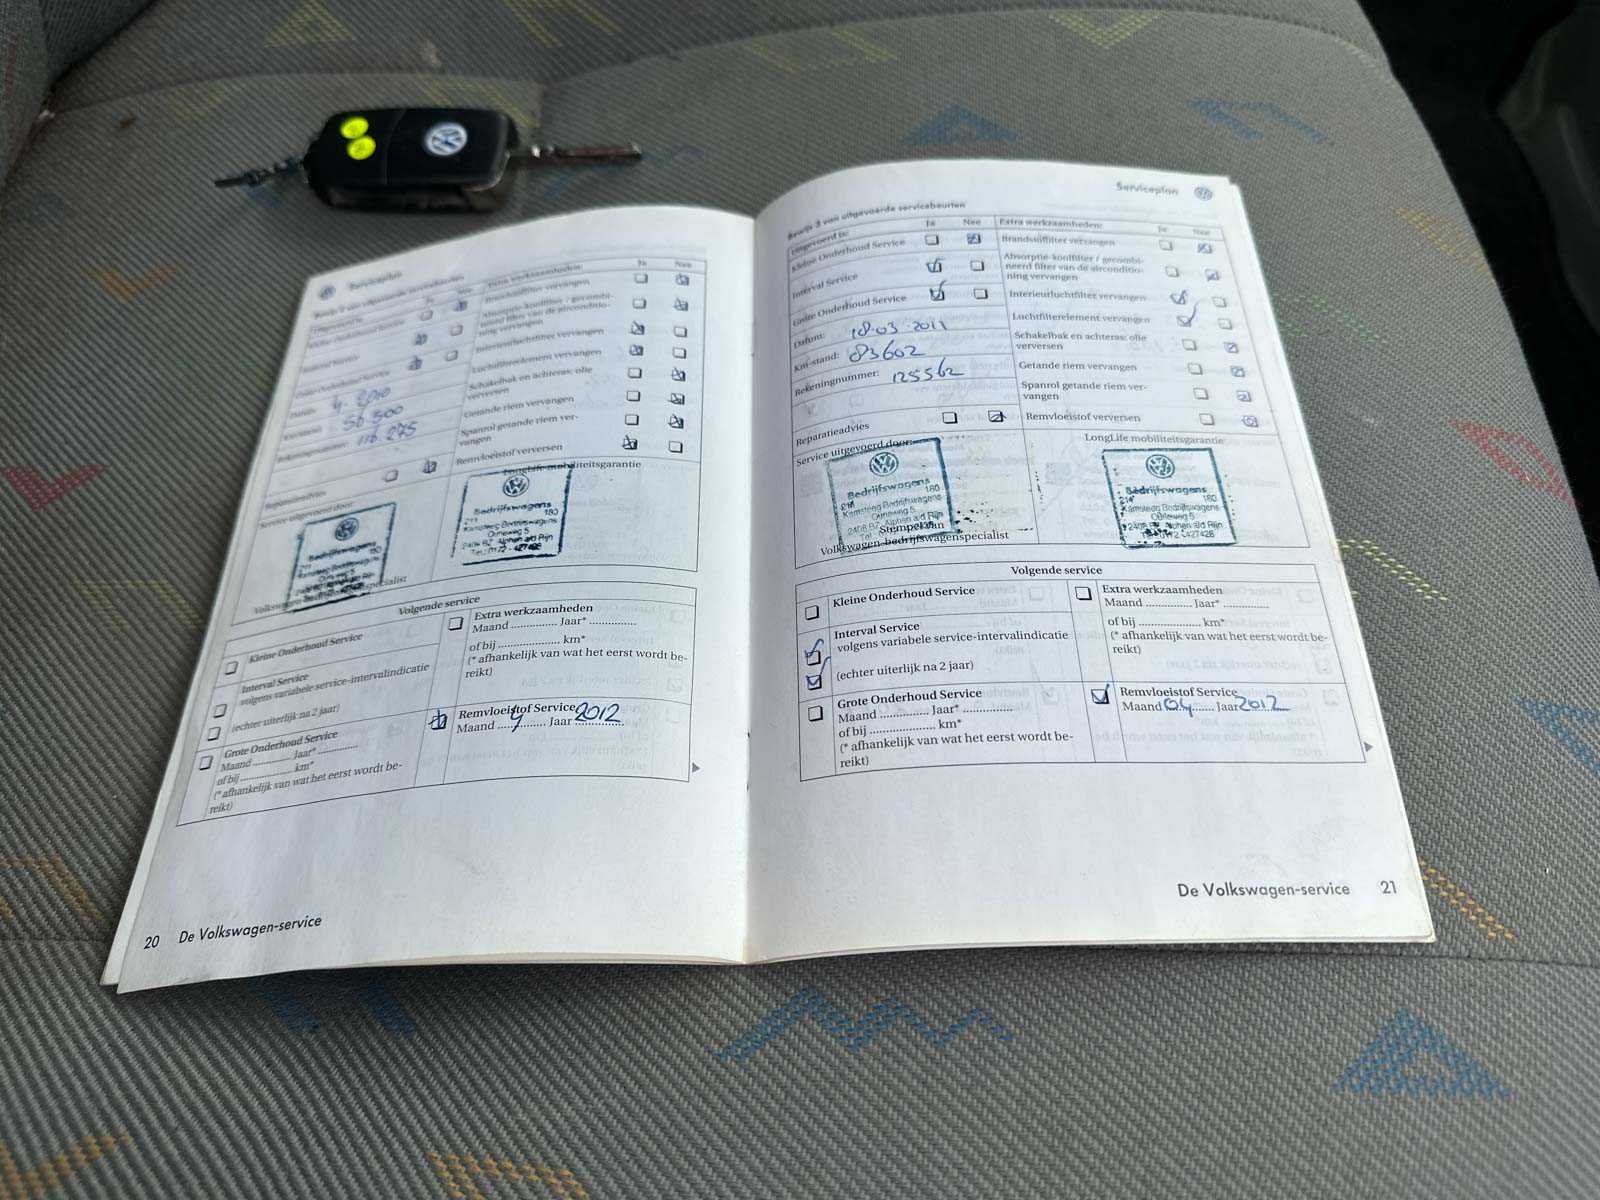 Serviceplan
Kleine Onderhoud Service
Grote Onderhoud Service
Ja Nee
Extra werkzaamheden:
Brandstoffilter vervangen
Absorptie-koolfilter / gecombi-
neerd filter van de airconditio-
ning vervangen
Interieurluchtfilter vervangen
Luchtfilterelement vervangen
Schakelbak en achteras: olie
verversen
Getande riem vervangen
Spanrol getande riem ver-
vangen
Remvloeistof verversen
4. 2010
56 500
116.275
Reparatieadvies
Service uitgevoerd door:
LongLife mobiliteitsgarantie
Bedrijfswagens
211 180
Kamsteeg Bedrijfswagens
Ormeweg 5
Tel.: 0172 - 427428
Volgende service
Kleine Onderhoud Service
Interval Service
volgens variabele service-intervalindicatie
(echter uiterlijk na 2 jaar)
Grote Onderhoud Service
Maand .............. Jaar* ..............
of bij ...................... km*
(* afhankelijk van wat het eerst wordt be-
reikt)
Extra werkzaamheden
Maand .............. Jaar* ..............
of bij ...................... km*
(* afhankelijk van wat het eerst wordt be-
reikt)
Remvloeistof Service
Maand 4 Jaar 2012
20 De Volkswagen-service
Serviceplan
Bewijs 3 van uitgevoerde servicebeurten
Uitgevoerd is: Ja Nee
Kleine Onderhoud Service
Interval Service
Grote Onderhoud Service
Datum: 18-03-2011
Km-stand: 83602
Rekeningnummer: 125562
Reparatieadvies
Extra werkzaamheden: Ja Nee
Brandstoffilter vervangen
Absorptie-koolfilter / gecombi-
neerd filter van de airconditio-
ning vervangen
Interieurluchtfilter vervangen
Luchtfilterelement vervangen
Schakelbak en achteras: olie
verversen
Getande riem vervangen
Spanrol getande riem ver-
vangen
Remvloeistof verversen
Service uitgevoerd door:
Bedrijfswagens
211 180
Kamsteeg Bedrijfswagens
2408 BZ Alphen a/d Rijn
Stempel van
Volkswagen-bedrijfswagenspecialist
LongLife mobiliteitsgarantie
Bedrijfswagens
180
Kamsteeg Bedrijfswagens
2408 BZ Alphen a/d Rijn
Tel.: 0172 - 427428
Volgende service
Kleine Onderhoud Service
Interval Service
volgens variabele service-intervalindicatie
(echter uiterlijk na 2 jaar)
Grote Onderhoud Service
Maand .............. Jaar* ..............
of bij ...................... km*
(* afhankelijk van wat het eerst wordt be-
reikt)
Extra werkzaamheden
Maand .............. Jaar* ..............
of bij ...................... km*
(* afhankelijk van wat het eerst wordt be-
reikt)
Remvloeistof Service
Maand 04 Jaar 2012
De Volkswagen-service 21